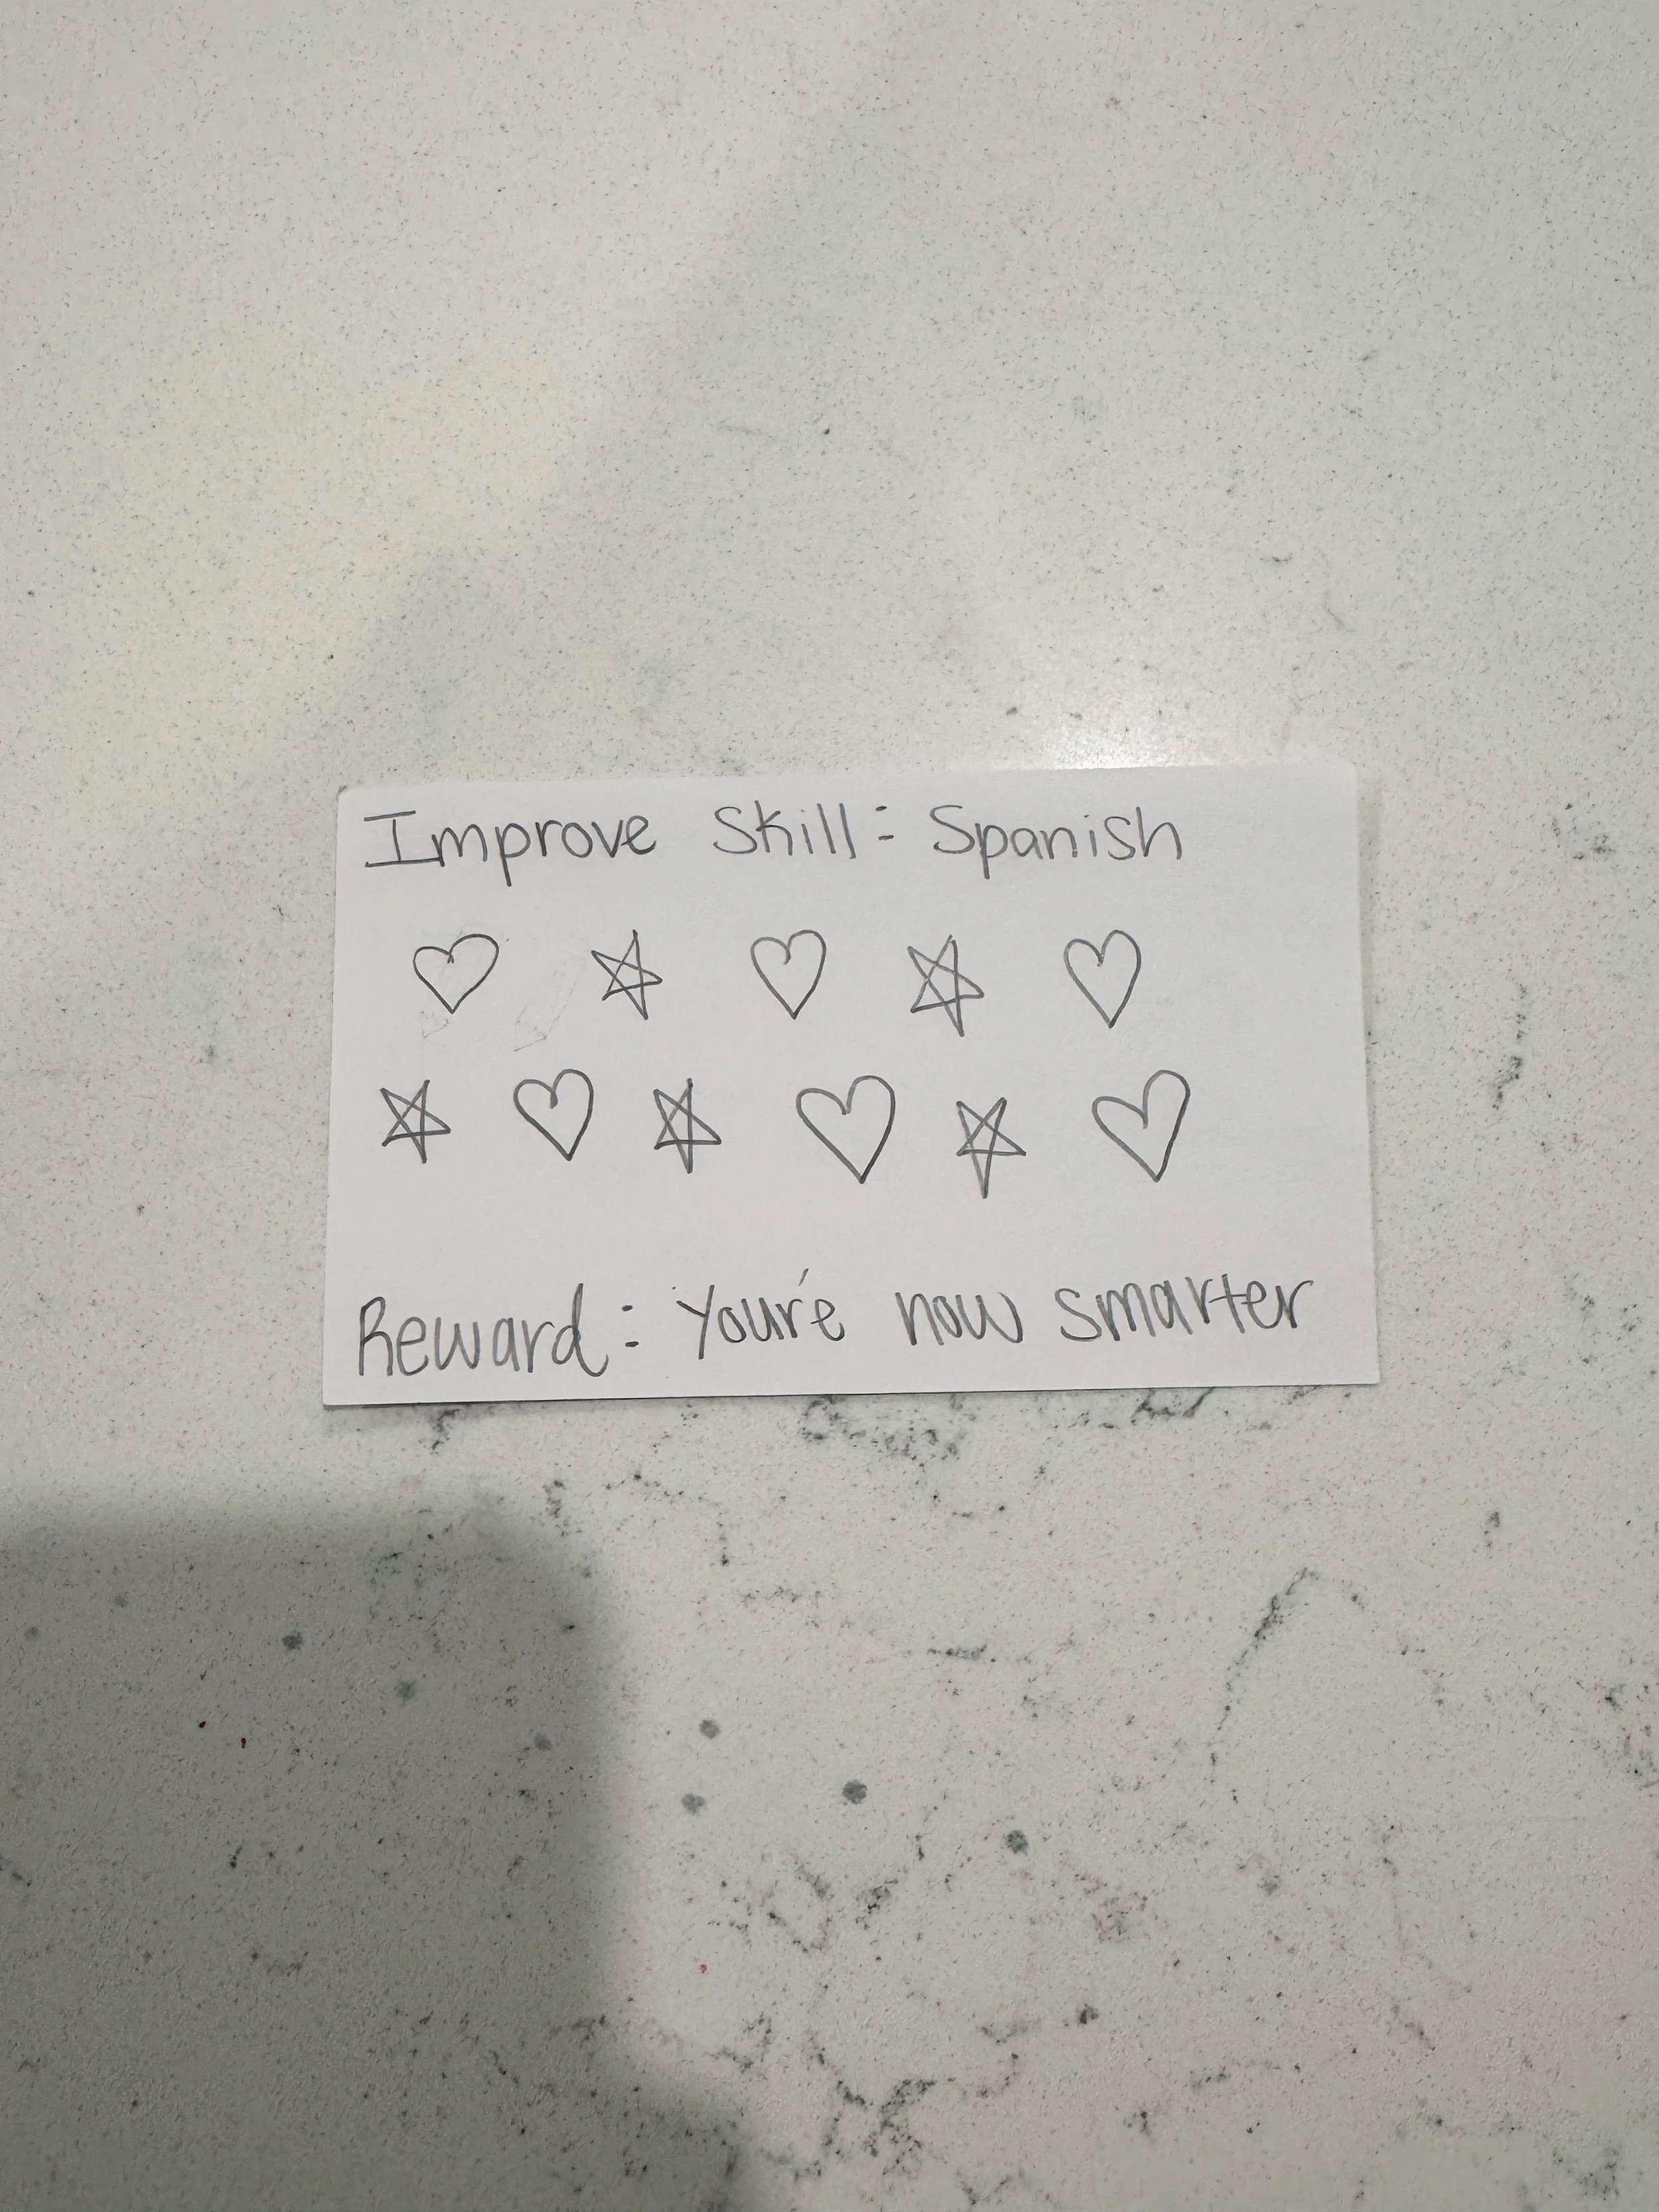 Improve Skill: Spanish
Reward: You're now smarter